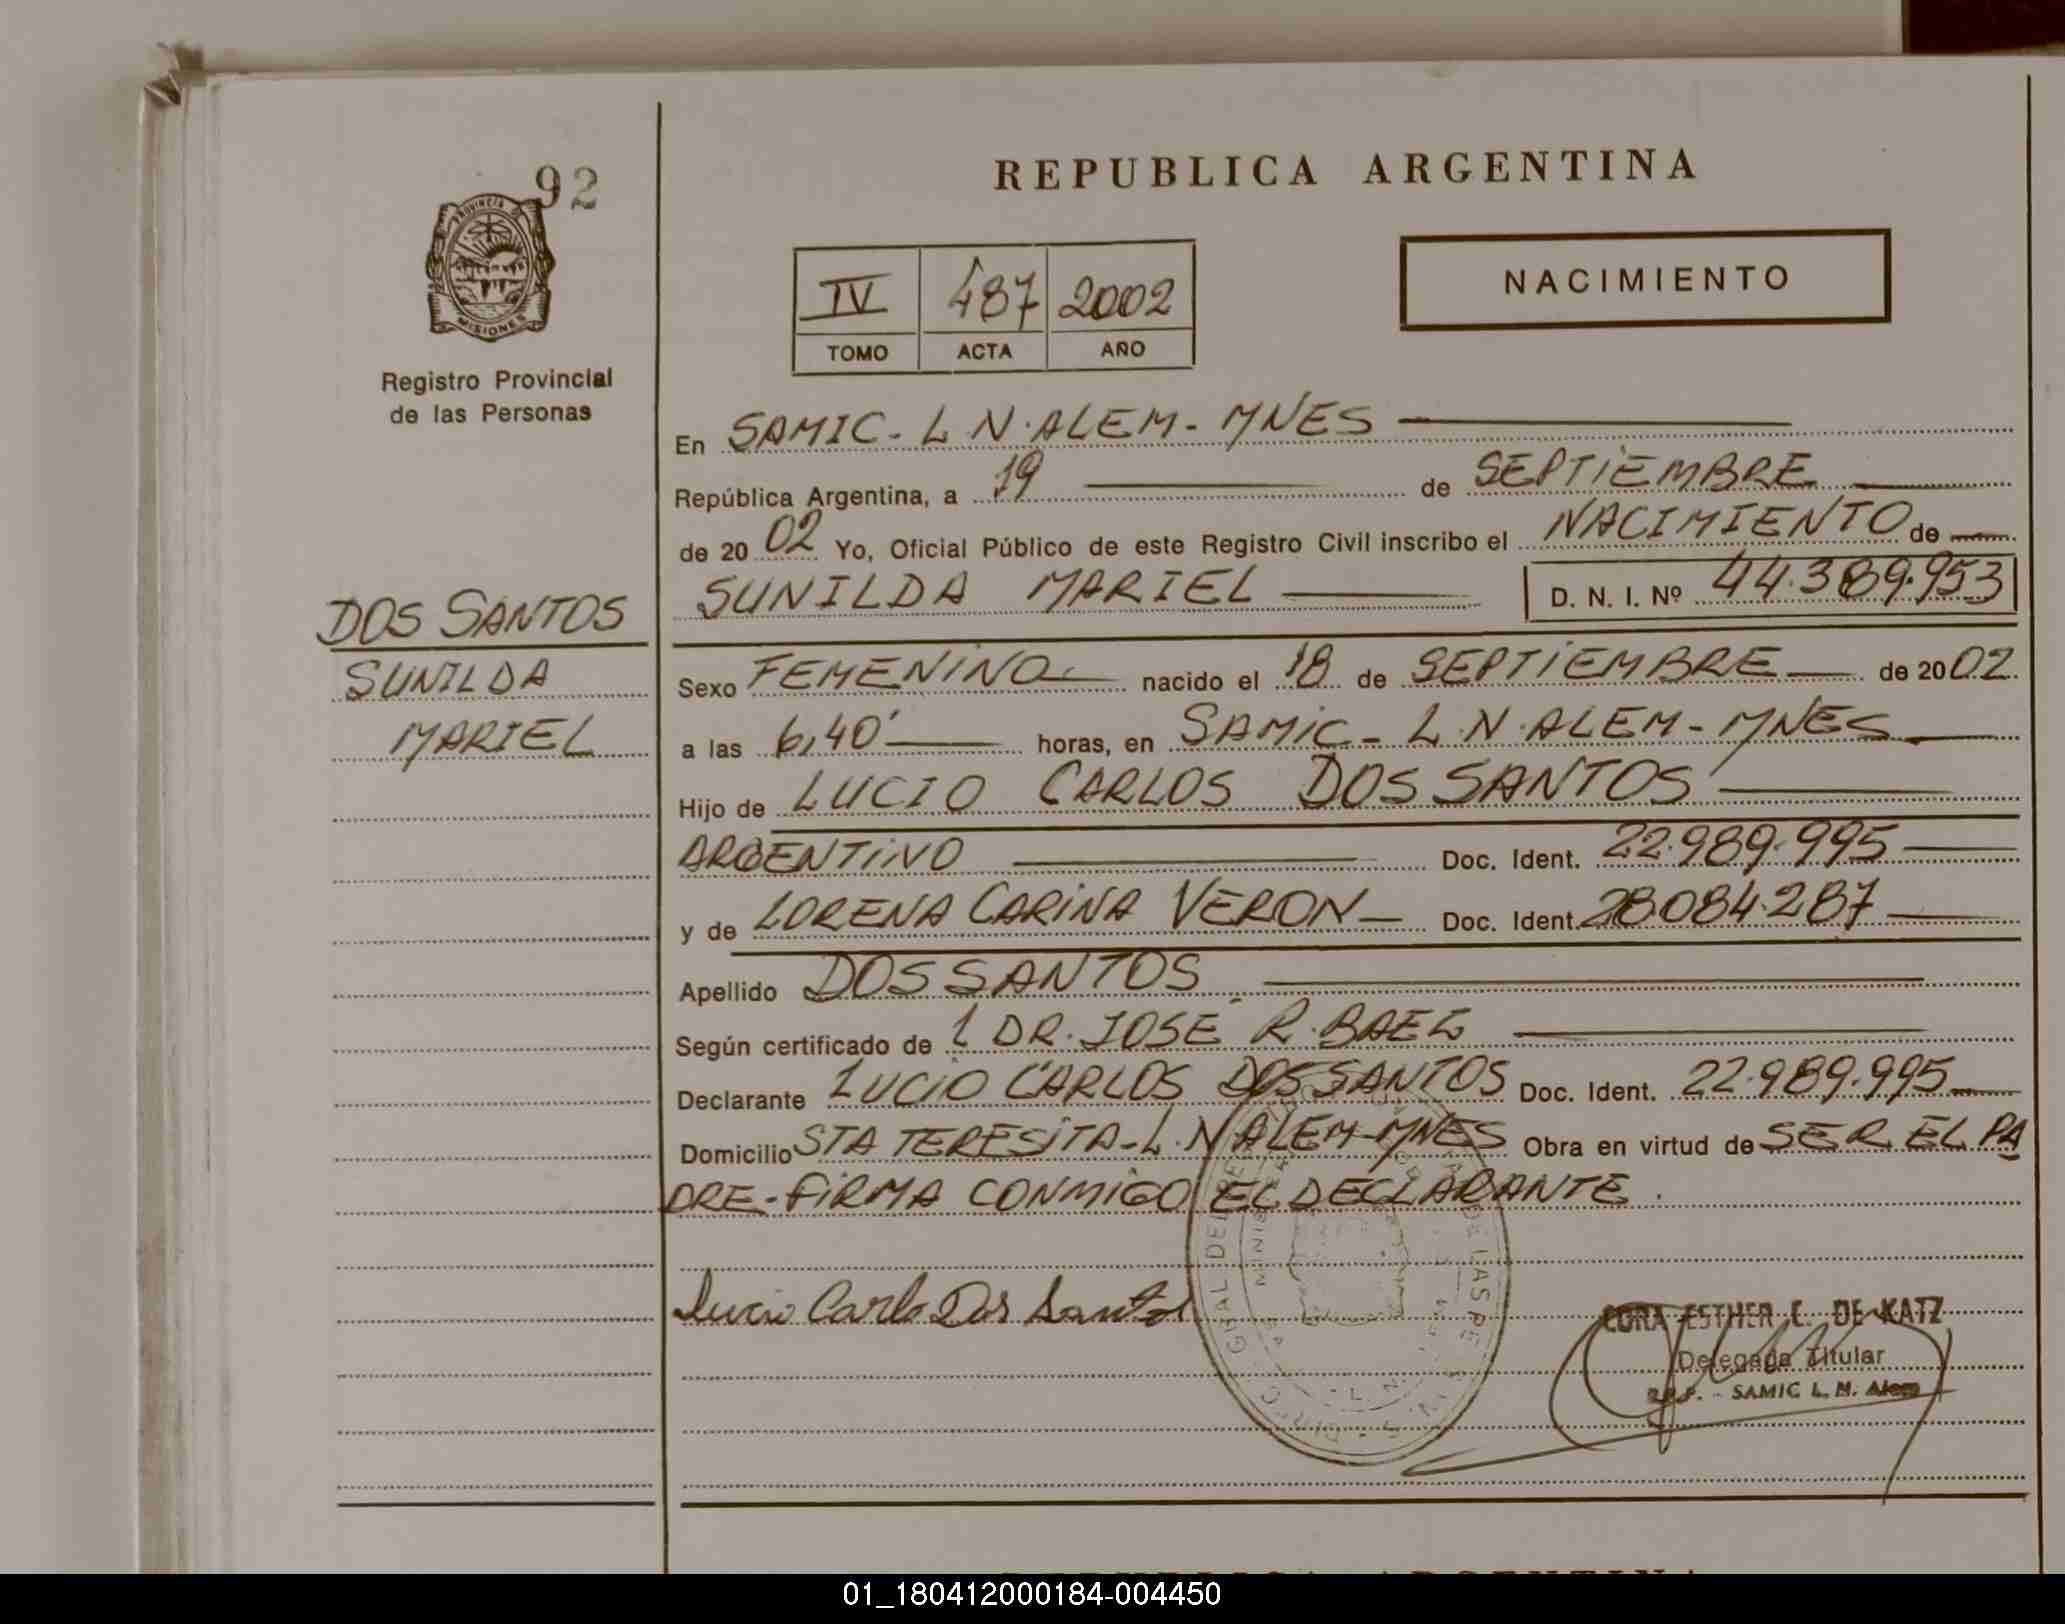 92
PROVINCIA DE
MISIONES
Registro Provincial
de las Personas
DOS SANTOS
SUNILDA
MARIEL
REPUBLICA ARGENTINA
IV 487 2002
TOMO ACTA AÑO
NACIMIENTO
En SAMIC - L N. ALEM - MNES
República Argentina, a 19 de SEPTIEMBRE
de 20 02 Yo, Oficial Público de este Registro Civil inscribo el NACIMIENTO de
SUNILDA MARIEL D. N. I. Nº 44.389.953
Sexo FEMENINO nacido el 18 de SEPTIEMBRE de 20 02
a las 6,40' horas, en SAMIC - L.N. ALEM - MNES
Hijo de LUCIO CARLOS DOS SANTOS
ARGENTINO Doc. Ident. 22.989.995
y de LORENA CARINA VERON Doc. Ident. 28.084.287
Apellido DOS SANTOS
Según certificado de l DR. JOSE R. BAEZ
Declarante LUCIO CARLOS DOS SANTOS Doc. Ident. 22.989.995
Domicilio STA TERESITA - L.N ALEM - MNES Obra en virtud de SER EL PA
DRE - FIRMA CONMIGO EL DECLARANTE.
Lucio Carlo Dos Santos
CORA ESTHER C. DE KATZ
Delegada Titular
R.P.P. - SAMIC L. N. Alem
REPUBLICA ARGENTINA
01_180412000184-004450